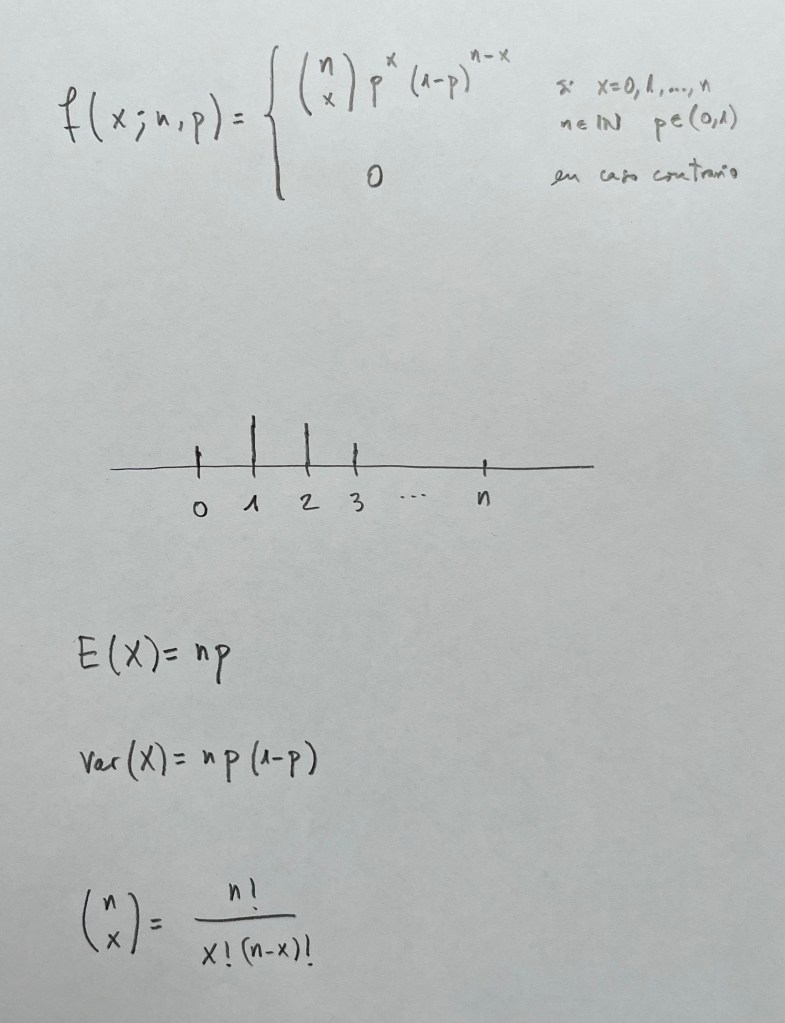 f(x;n,p) = { (n x) p^x (1-p)^{n-x} si x=0,1,...,n
n∈ℕ p∈(0,1)
0 en caso contrario
0 1 2 3 ... n
E(X)= np
var(X)= np(1-p)
(n x) = n! / x!(n-x)!